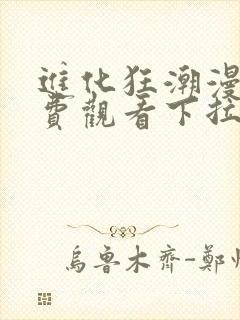 進化狂潮漫
費觀看下拉
烏魯木齊-鄭州